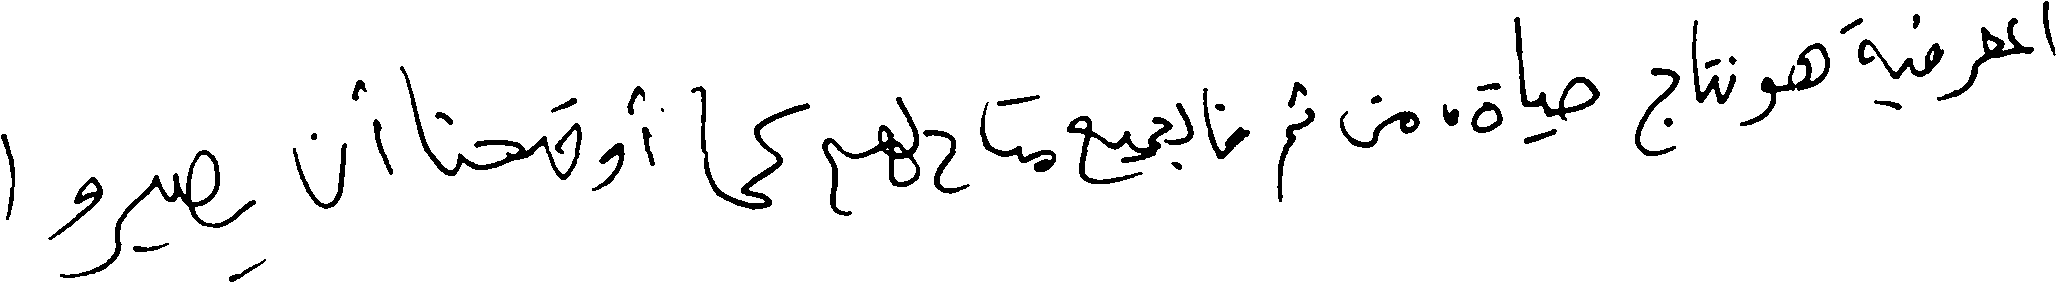 المعرفية هو نتاج حياة، من ثم فالجميع متاح لهم كما أوضحنا أن يصيروا